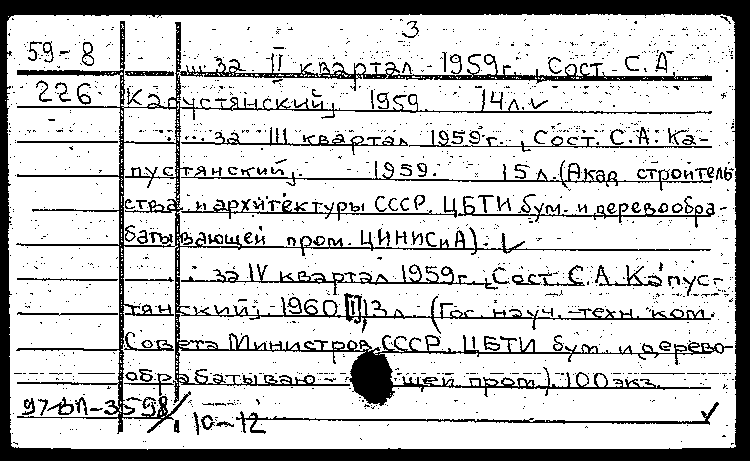 3
59-8 ... за II квартал 1959г. [Сост. С.А.
226 Капустянский]. 1959. 14л. ✓
... за III квартал 1959г. [Сост. С.А. Ка-
пустянский]. 1959. 15л. (Акад. строитель
ства и архитектуры СССР. ЦБТИ бум. и деревообра-
батывающей пром. ЦИНИСиА). ✓
... за IV квартал 1959г. [Сост. С.А. Капус-
тянский]. 1960 13л. (Гос. науч.-техн. ком.
Совета Министров СССР. ЦБТИ бум. и дерево-
обрабатываю- щей пром.). 100экз.
97-ВЛ-3598/ 10-12 ✓